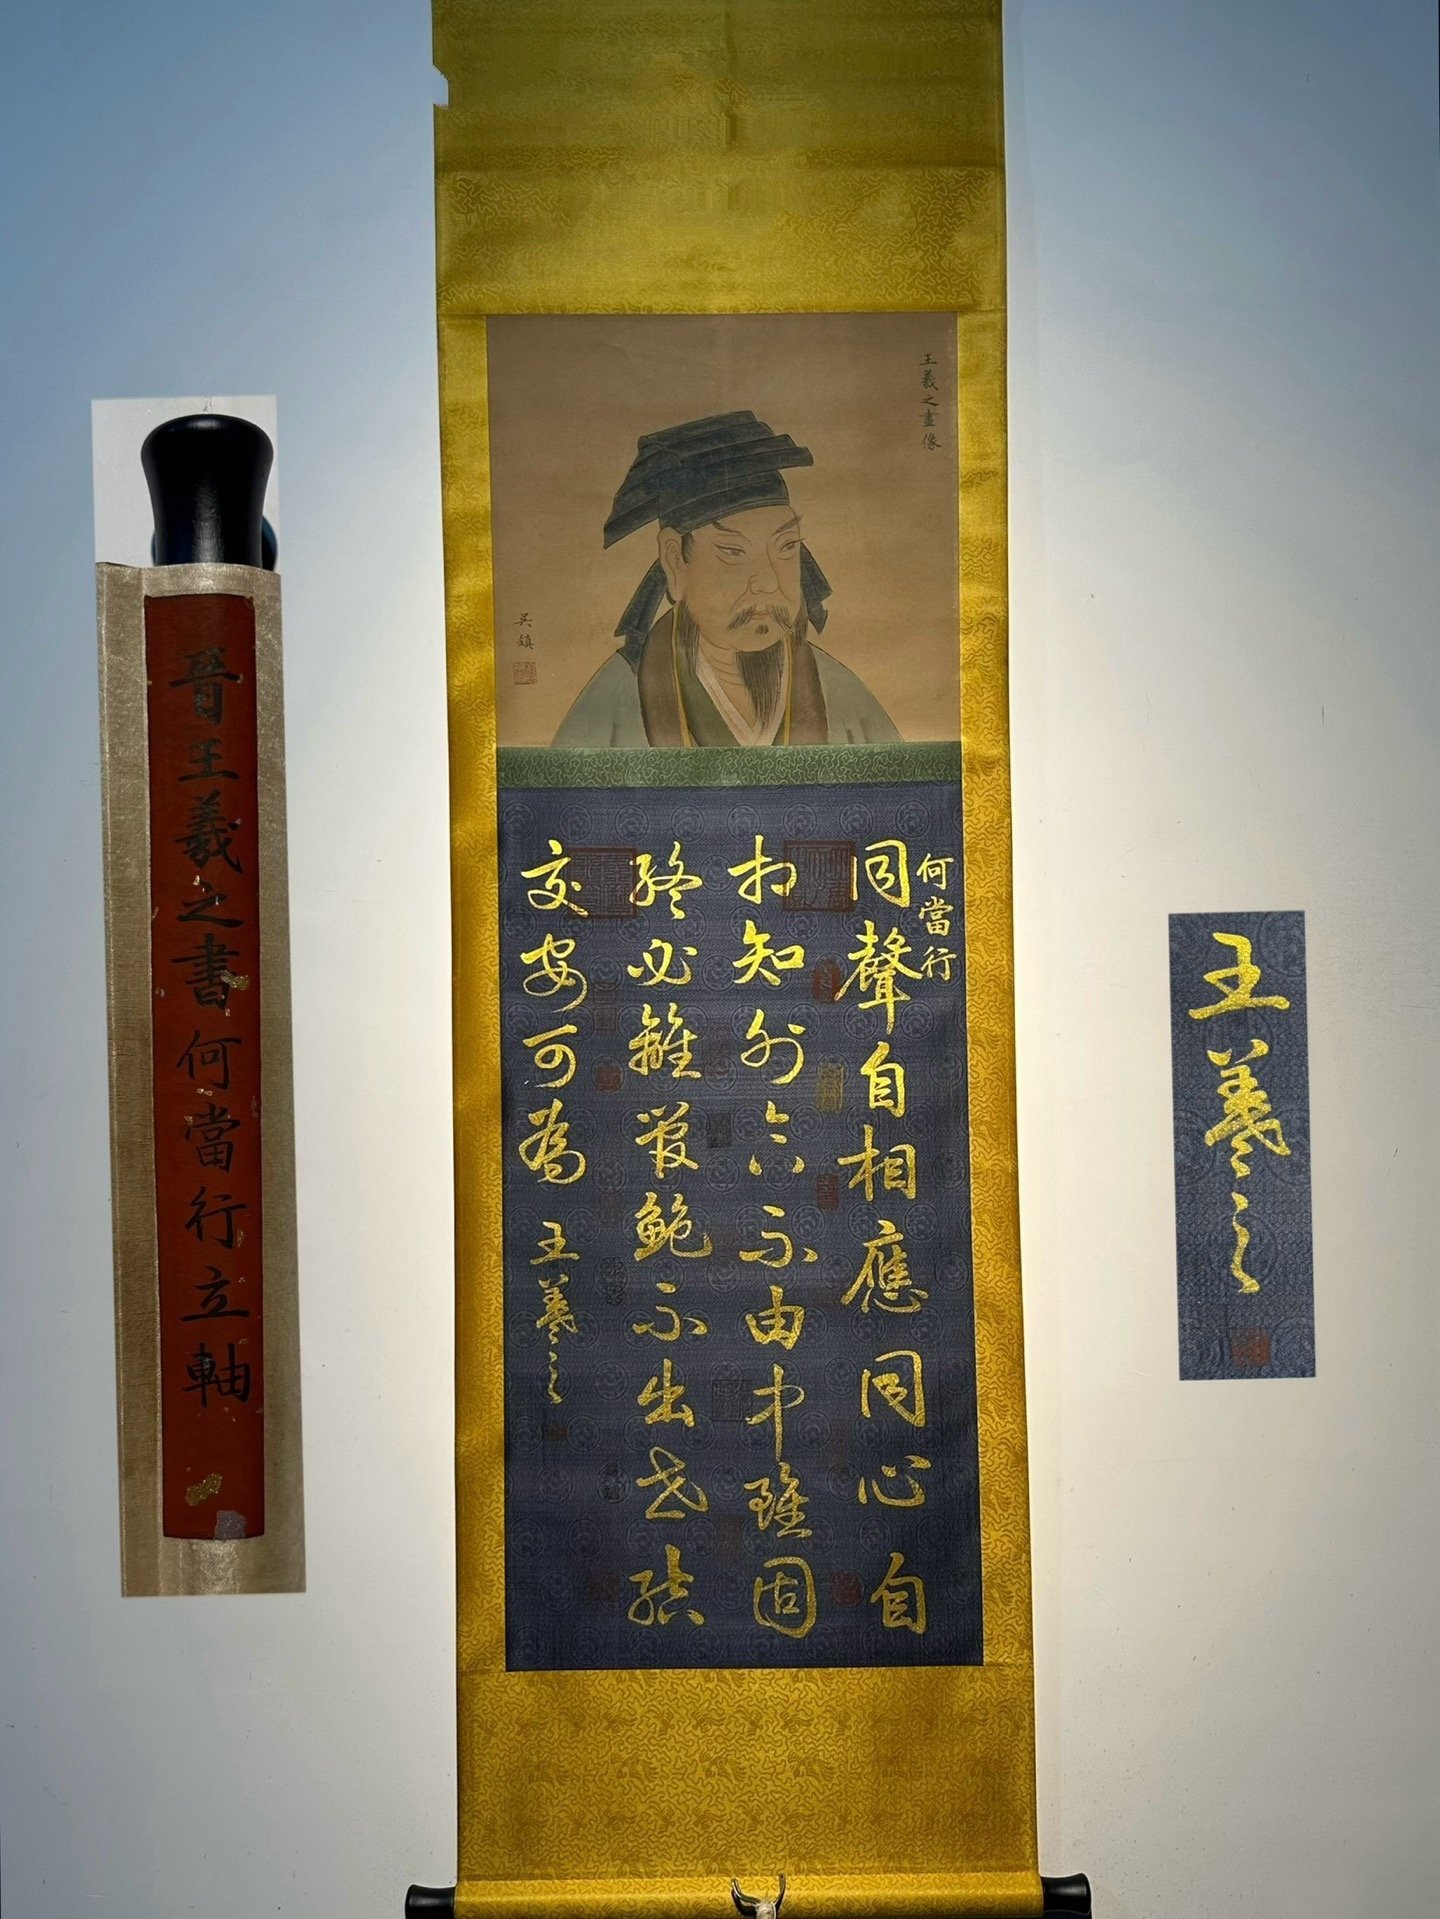 王羲之畫像
吳鎮
何當行
同聲自相應同心自
相知外合不由中雖固
終必離管鮑不出世結
交安可為 王羲之
晉王羲之書何當行立軸
王羲之